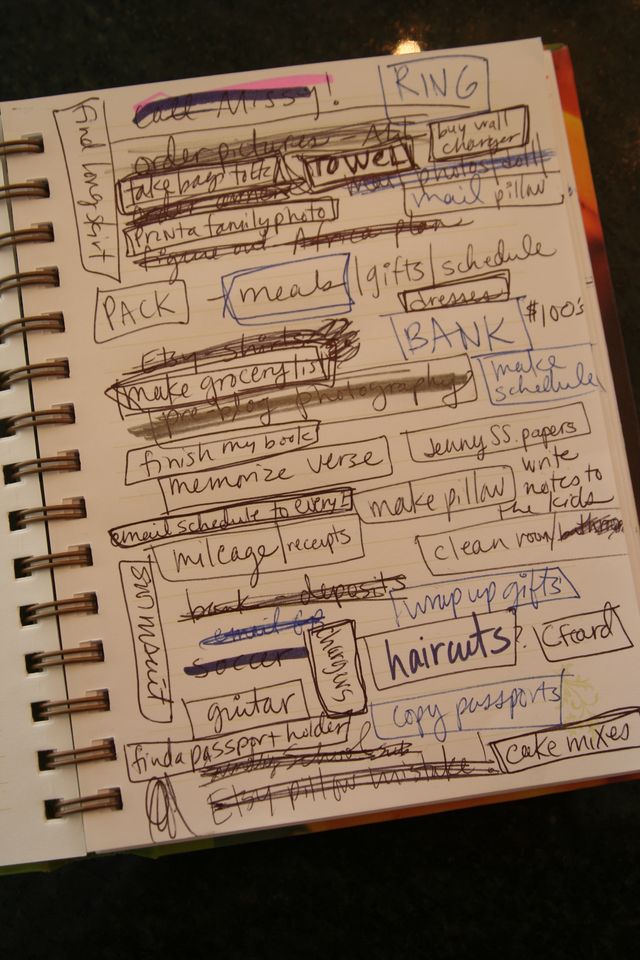 Call Missy!
RING
find long skirt
order pictures
buy wall
charger
TOWEL
take bags to
mail photos
mail pillow
Print a family photo
Figure out Africa plan
PACK - meals | gifts | schedule
dresses
BANK $100's
Etsy shirts
make grocery list
make
schedule
pre-blog photography
finish my book
Jenny SS. papers
memorize verse
write
notes to
the kids
make pillow
email schedule to every1
mileage | receipts
clean room/
swimsuit
bank deposits
wrap up gifts
email
soccer
chargers
haircuts?
CF card
guitar
copy passports
find a passport holder
cake mixes
Etsy pillow mistake